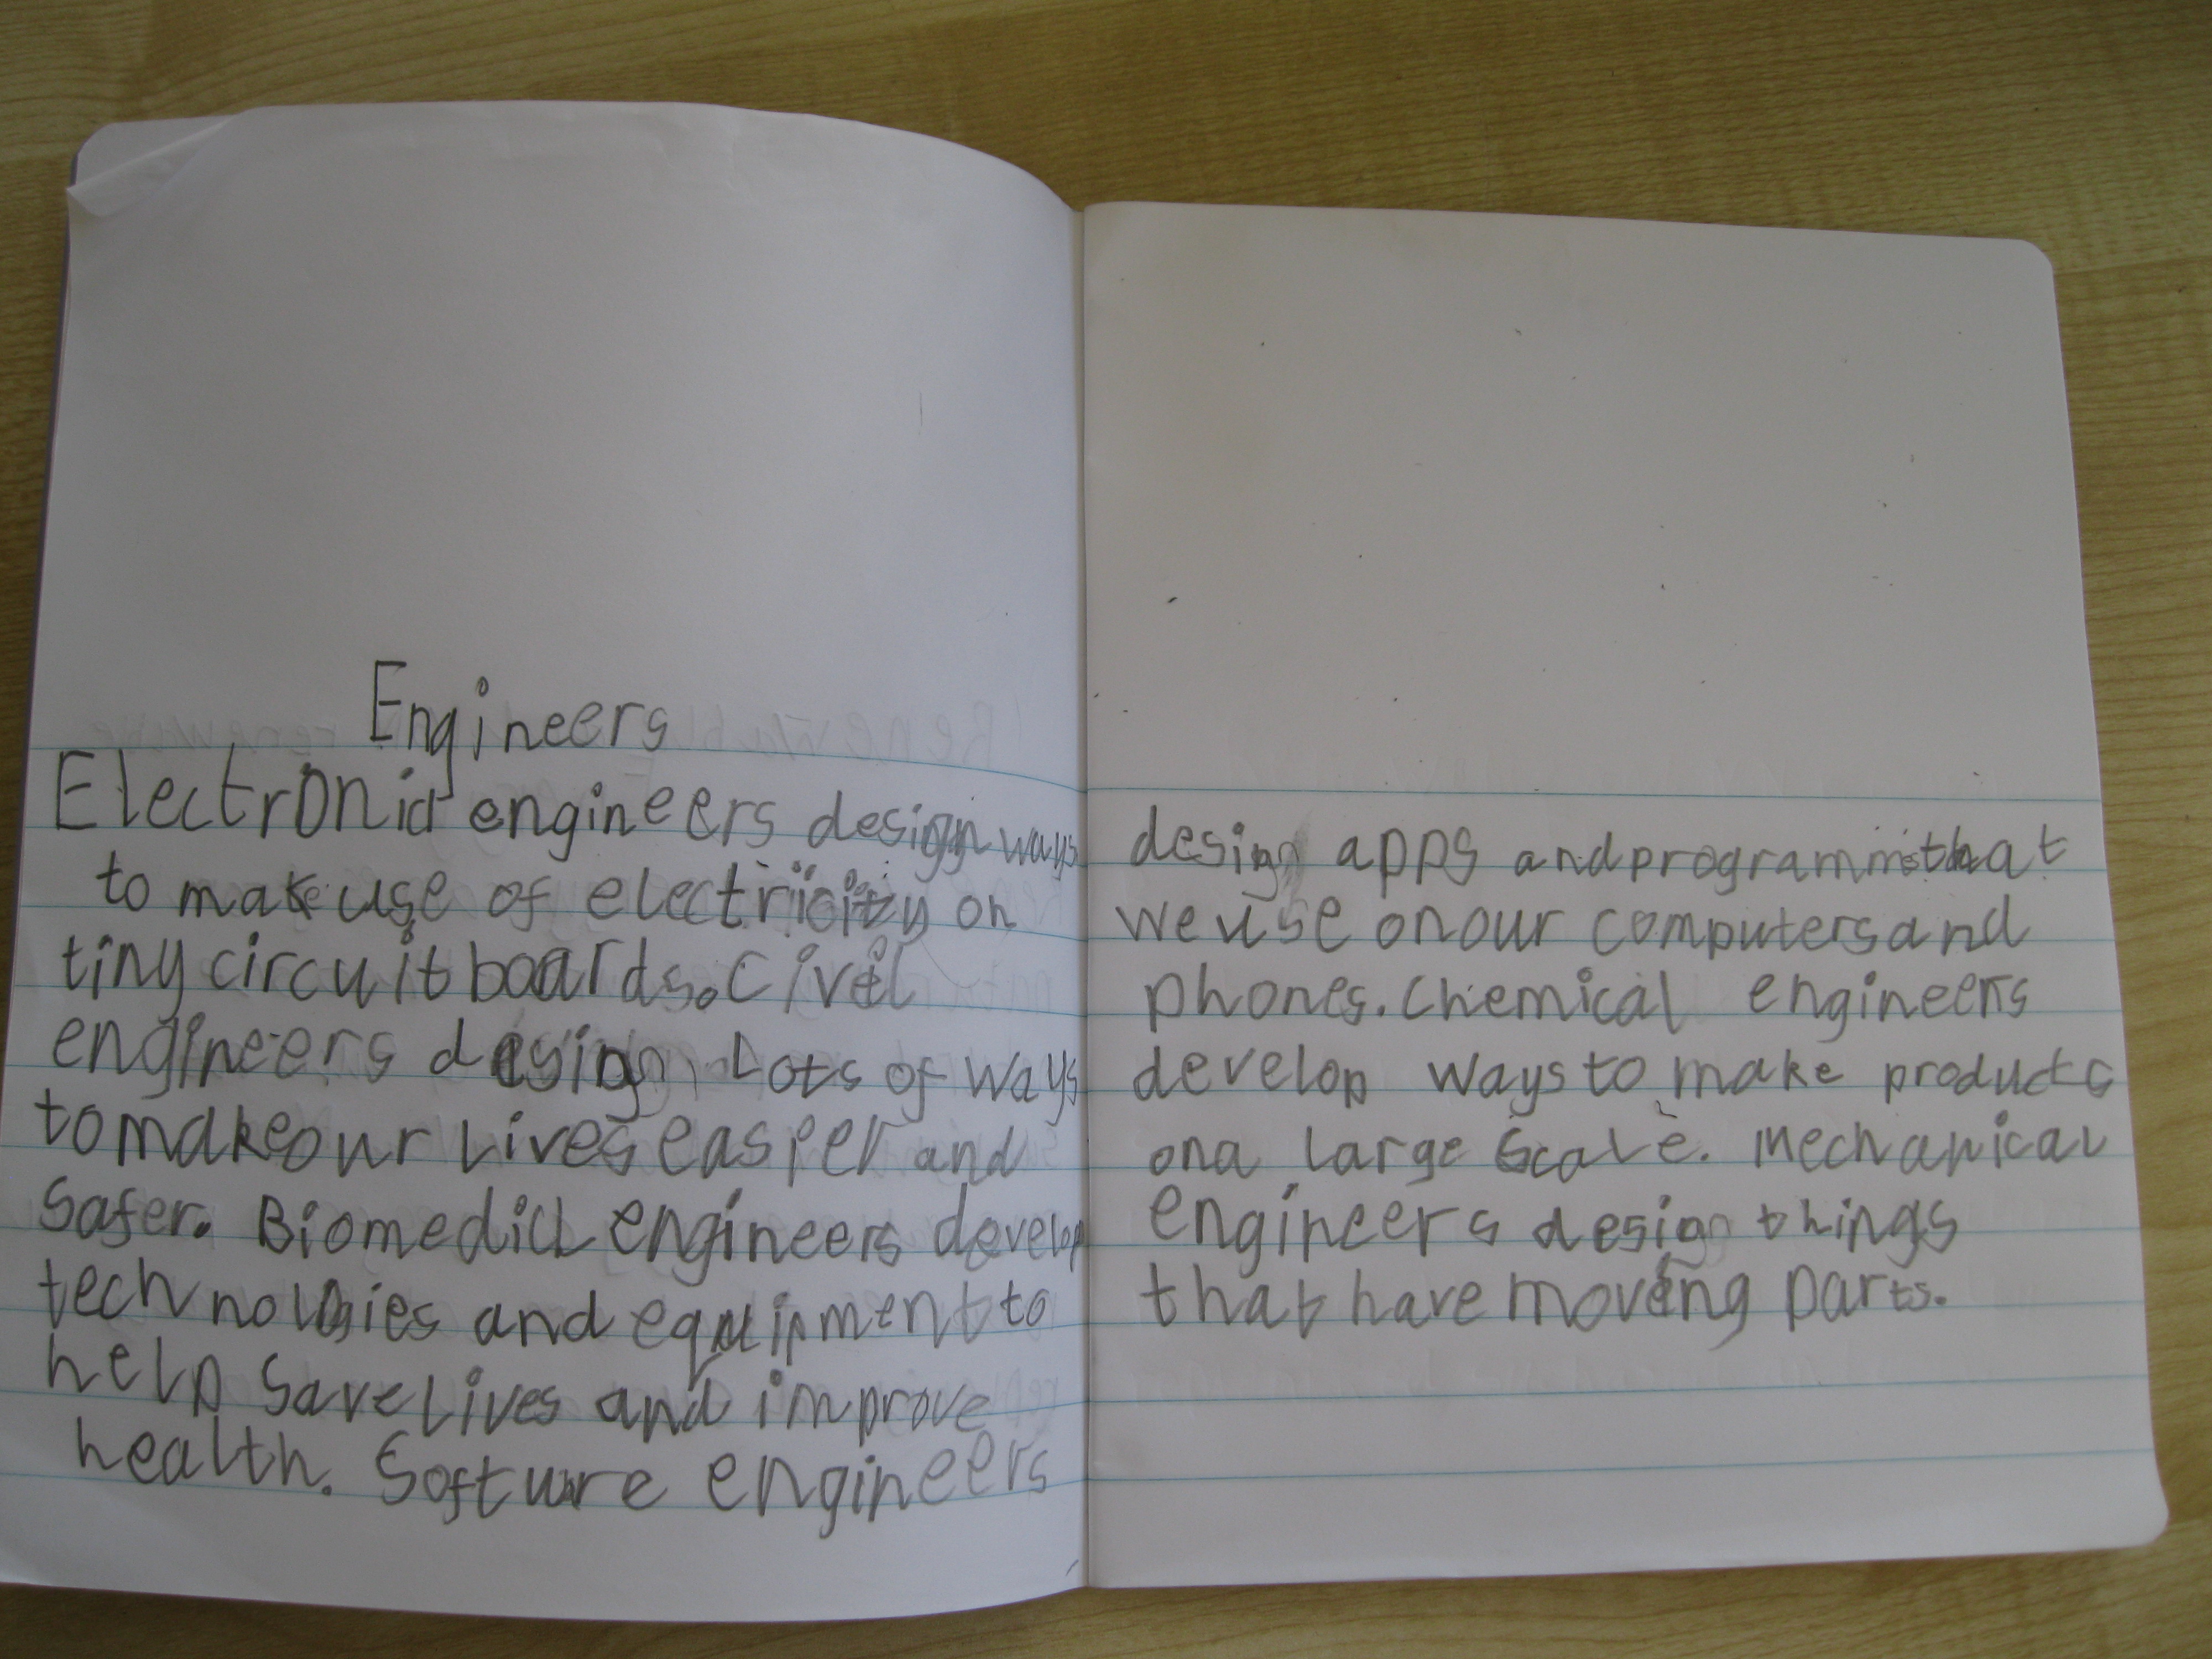 Engineers
Electronic engineers design ways
to make use of electricity on
tiny circuit boards. Civil
engineers design Lots of ways
to make our Lives easier and
Safer. Biomedicl engineers develop
technologies and equipment to
help save Lives and improve
health. Software engineers
design apps and programms that
we use on our computers and
phones. Chemical engineers
develop ways to make products
on a large scale. Mechanical
engineers design things
that have moving parts.